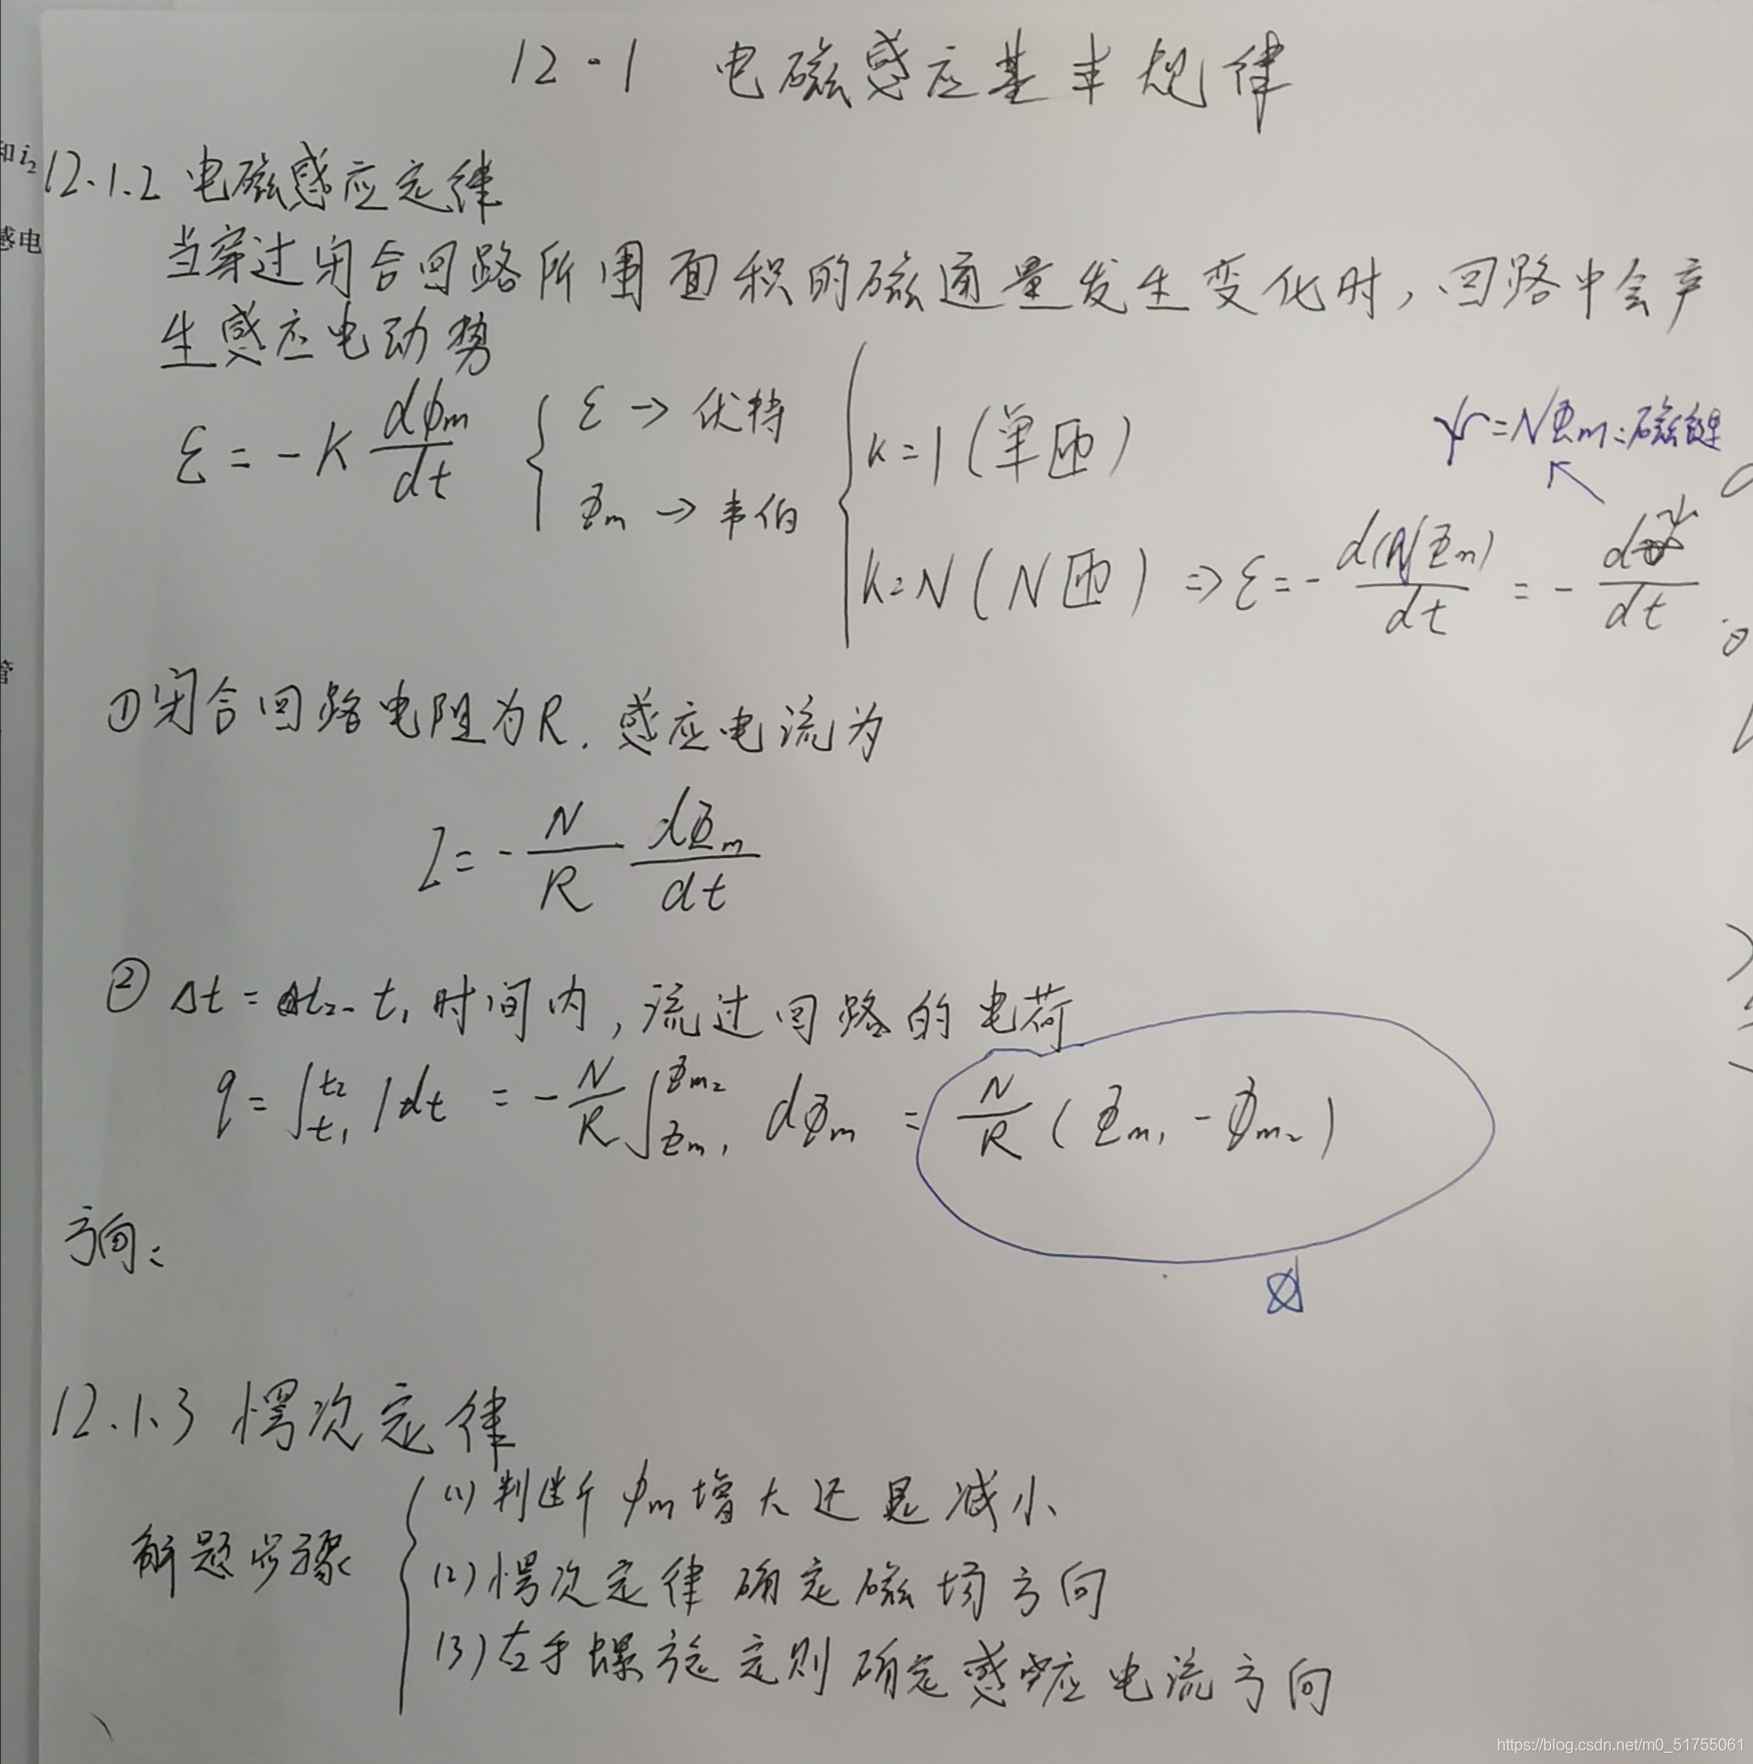 12-1 电磁感应基本规律
和i₂
12.1.2 电磁感应定律
感电
当穿过闭合回路所围面积的磁通量发生变化时,回路中会产
生感应电动势
ε = -K dφm/dt { ε → 伏特 Φm → 韦伯 { k=1 (单匝)
ψ=NΦm:磁链
k=N (N匝) ⇒ ε = - d(NΦm)/dt = - dψ/dt
管
①闭合回路电阻为R.感应电流为
I = - N/R dΦm/dt
② Δt = t₂-t₁ 时间内,流过回路的电荷
q = ∫_{t₁}^{t₂} Idt = - N/R ∫_{Φm₁}^{Φm₂} dΦm = N/R (Φm₁ - Φm₂)
方向:
12.1.3 愣次定律
解题步骤 { (1)判断φm增大还是减小
(2)愣次定律确定磁场方向
(3)右手螺旋定则确定感应电流方向
https://blog.csdn.net/m0_51755061